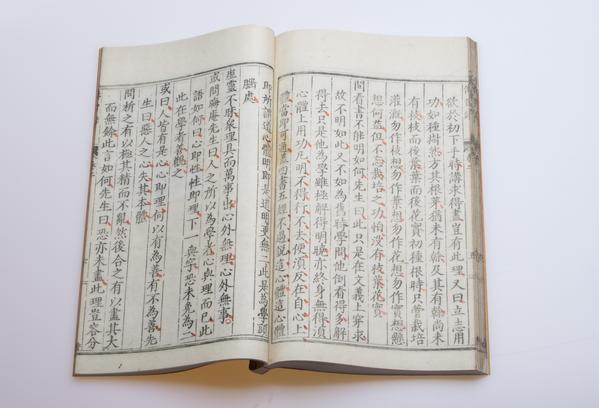 欲於初下手時講求得盡豈有此理又曰立志用
功如種樹然方其根芽猶未有幹及其有幹尚未
有枝枝而後葉葉而後花實初種根時只管栽培
灌溉勿作枝想勿作葉想勿作花想勿作實想懸
想何益但不忘栽培之功怕沒有枝葉花實
問看書不能明如何先生曰此只是在文義上穿求
故不明如此又不如為舊時學問他倒看得多解
得去只是他為學雖極解得明曉亦終身無得須
心體上用功凡明不得行不去便須反在自心上
體當即可通蓋四書五經不過說這心體這心體
即所謂道心體明即是道明更無二此是為學頭
腦處
虛靈不昧衆理具而萬事出心外無理心外無事
或問晦庵先生曰人之所以為學者心與理而已此
語如何曰心即性性即理下一與字恐未免為二
此在學者善觀之
或曰人皆有是心心即理何以有為善有不為善先
生曰惡人之心失其本體
問析之有以極其精而不亂然後合之有以盡其大
而無餘此言如何先生曰恐亦未盡此理豈容分